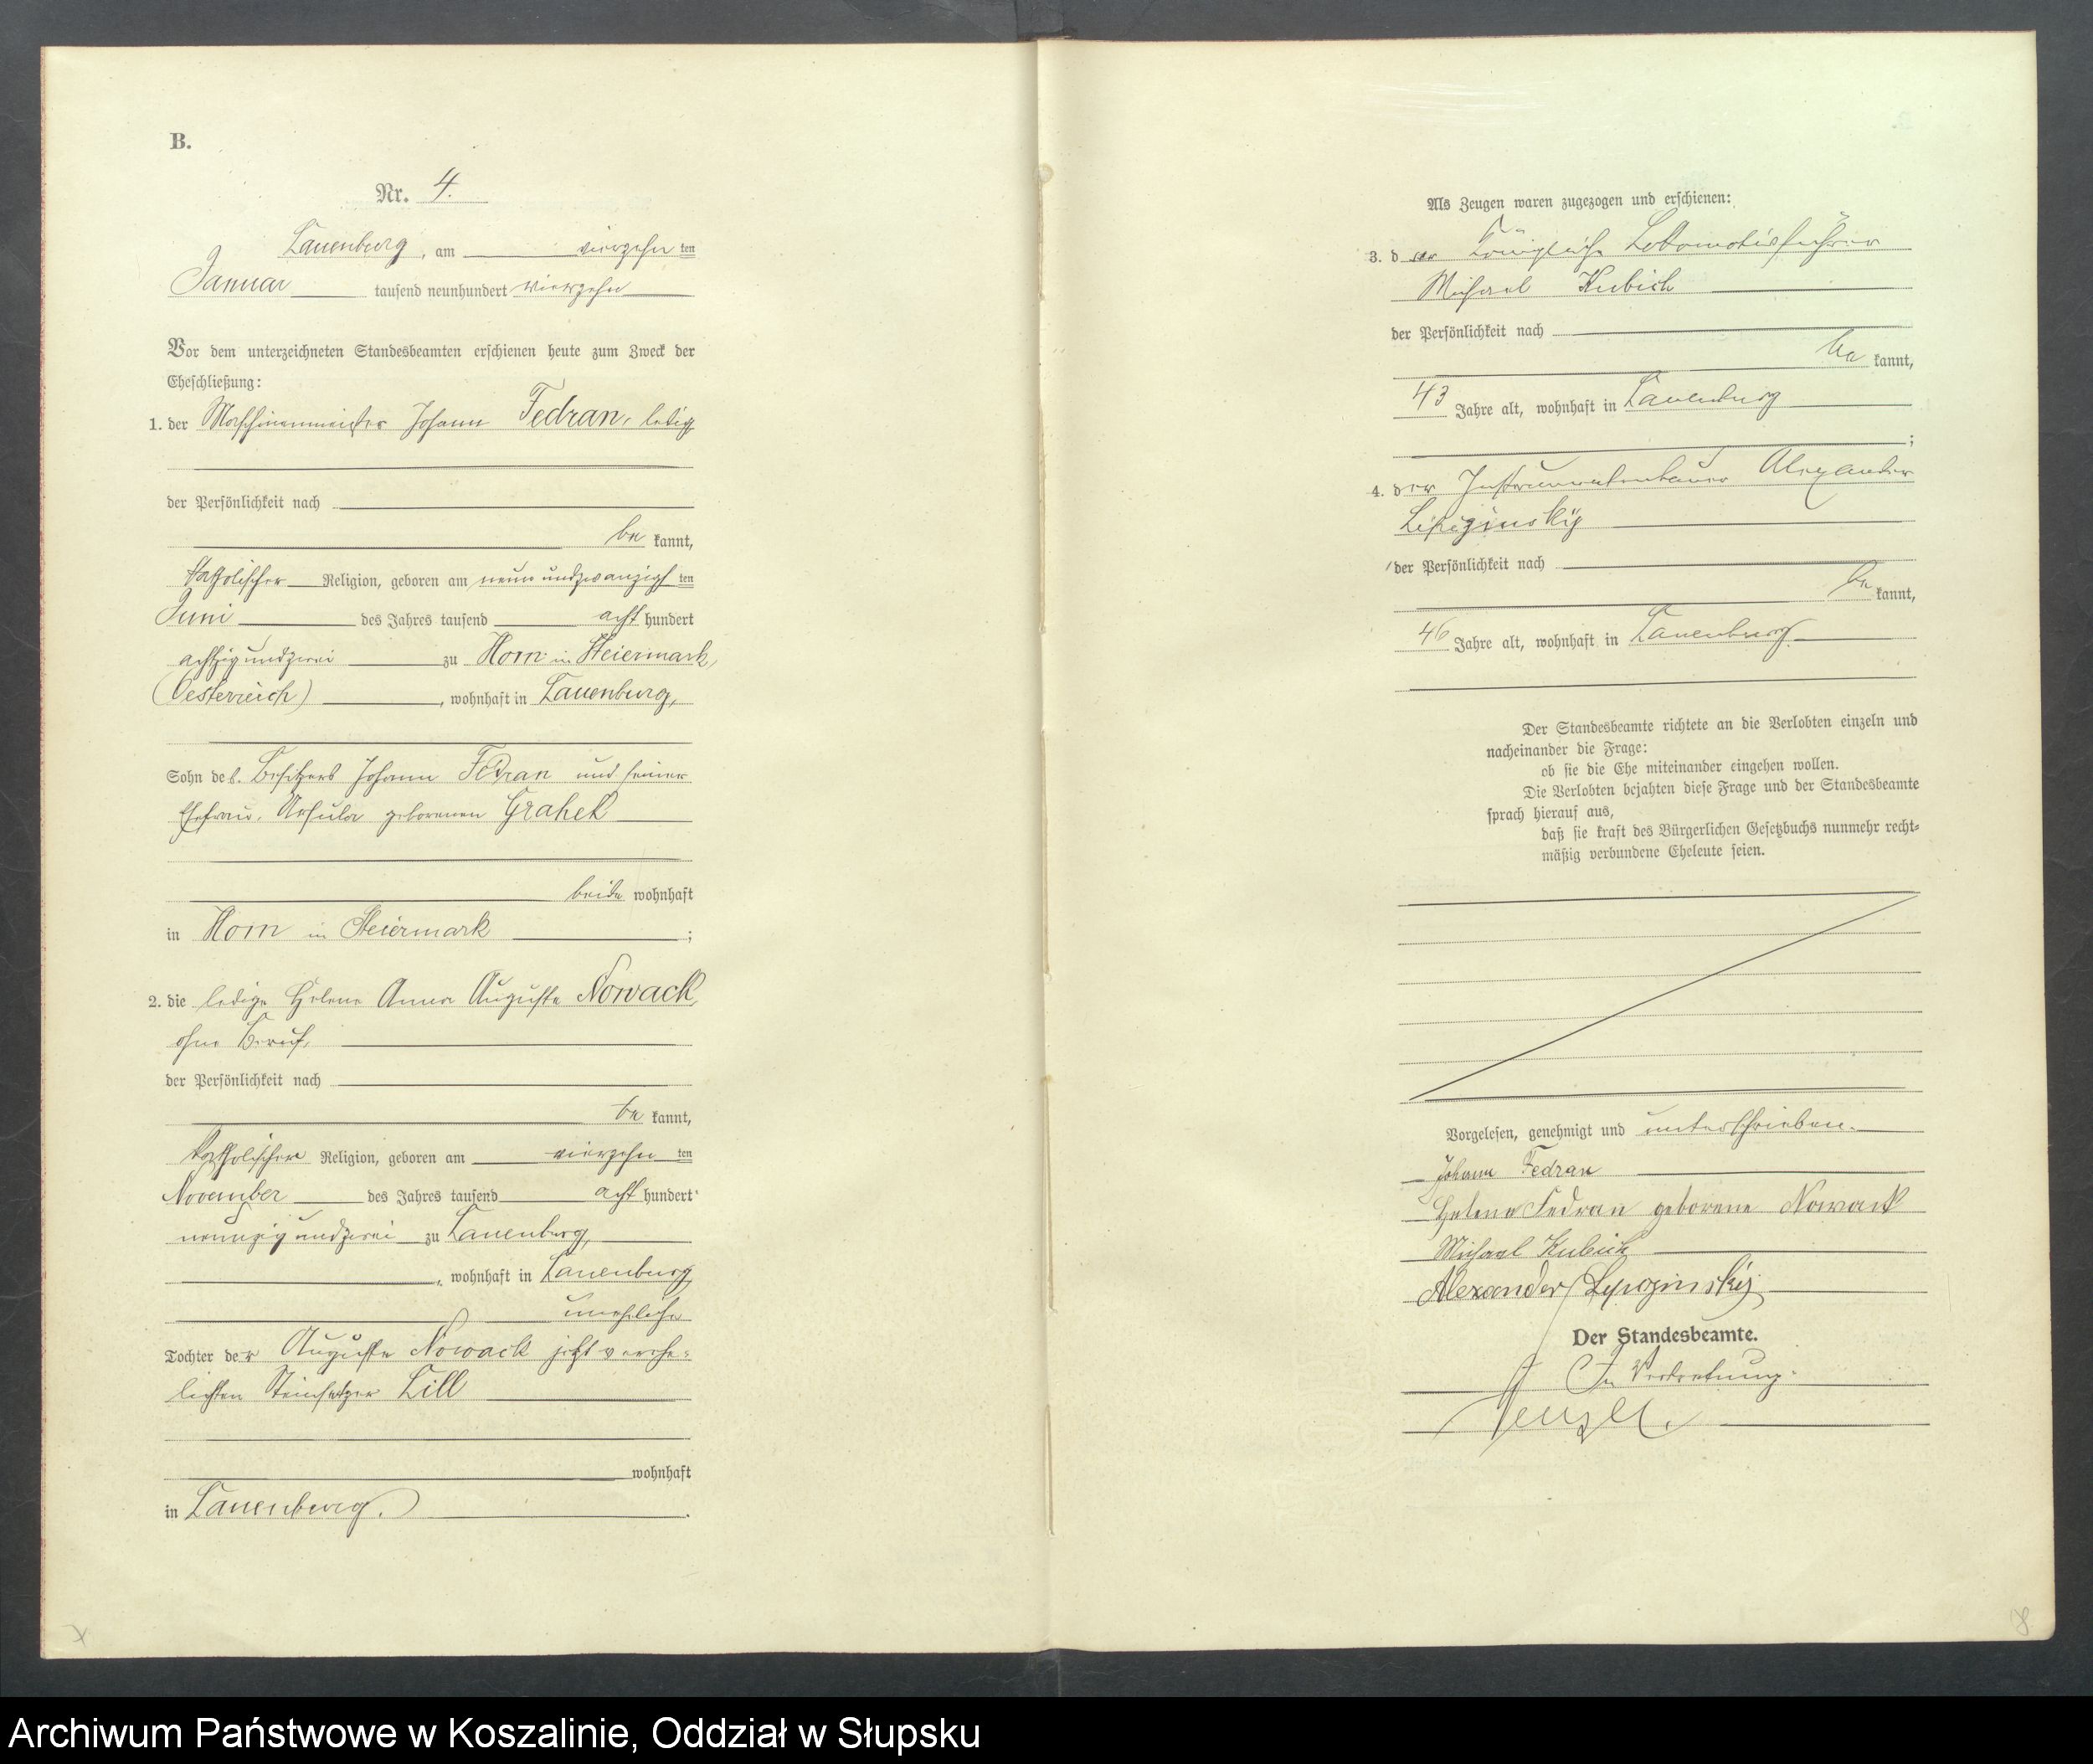 B.
Nr. 4.
Lauenburg, am vierzehn ten
Januar tausend neunhundert vierzehn
Vor dem unterzeichneten Standesbeamten erschienen heute zum Zweck der
Eheschließung:
1. der Maschinenmeister Johann Fedran, ledig
der Persönlichkeit nach
be kannt,
katholischer Religion, geboren am neunundzwanzigsten
Juni des Jahres tausend acht hundert
achtzigundzwei zu Horn in Steiermark,
(Oesterreich), wohnhaft in Lauenburg,
Sohn des Besitzers Johann Fedran und seiner
Ehefrau, Ursula geborenen Grahek
beide wohnhaft
in Horn in Steiermark;
2. die ledige Helene Anna Auguste Nowack,
ohne Beruf,
der Persönlichkeit nach
be kannt,
katholischer Religion, geboren am vierzehn ten
November des Jahres tausend acht hundert
neunzigundzwei zu Lauenburg,
, wohnhaft in Lauenburg
uneheliche
Tochter der Auguste Nowack jetzt verehe-
lichten Steinsetzer Lill
wohnhaft
in Lauenburg.
Als Zeugen waren zugezogen und erschienen:
3. der Königliche Lokomotivführer
Michael Kubick
der Persönlichkeit nach
be kannt,
43 Jahre alt, wohnhaft in Lauenburg
;
4. der Instrumentenbauer Alexander
der Persönlichkeit nach
be kannt,
46 Jahre alt, wohnhaft in Lauenburg.
Der Standesbeamte richtete an die Verlobten einzeln und
nacheinander die Frage:
ob sie die Ehe miteinander eingehen wollen.
Die Verlobten bejahten diese Frage und der Standesbeamte
sprach hierauf aus,
daß sie kraft des Bürgerlichen Gesetzbuchs nunmehr recht-
mäßig verbundene Eheleute seien.
Vorgelesen, genehmigt und unterschrieben.
Johann Fedran
Helene Fedran geborene Nowack
Michael Kubick
Alexander
Der Standesbeamte.
In Vertretung:
8
Archiwum Państwowe w Koszalinie, Oddział w Słupsku